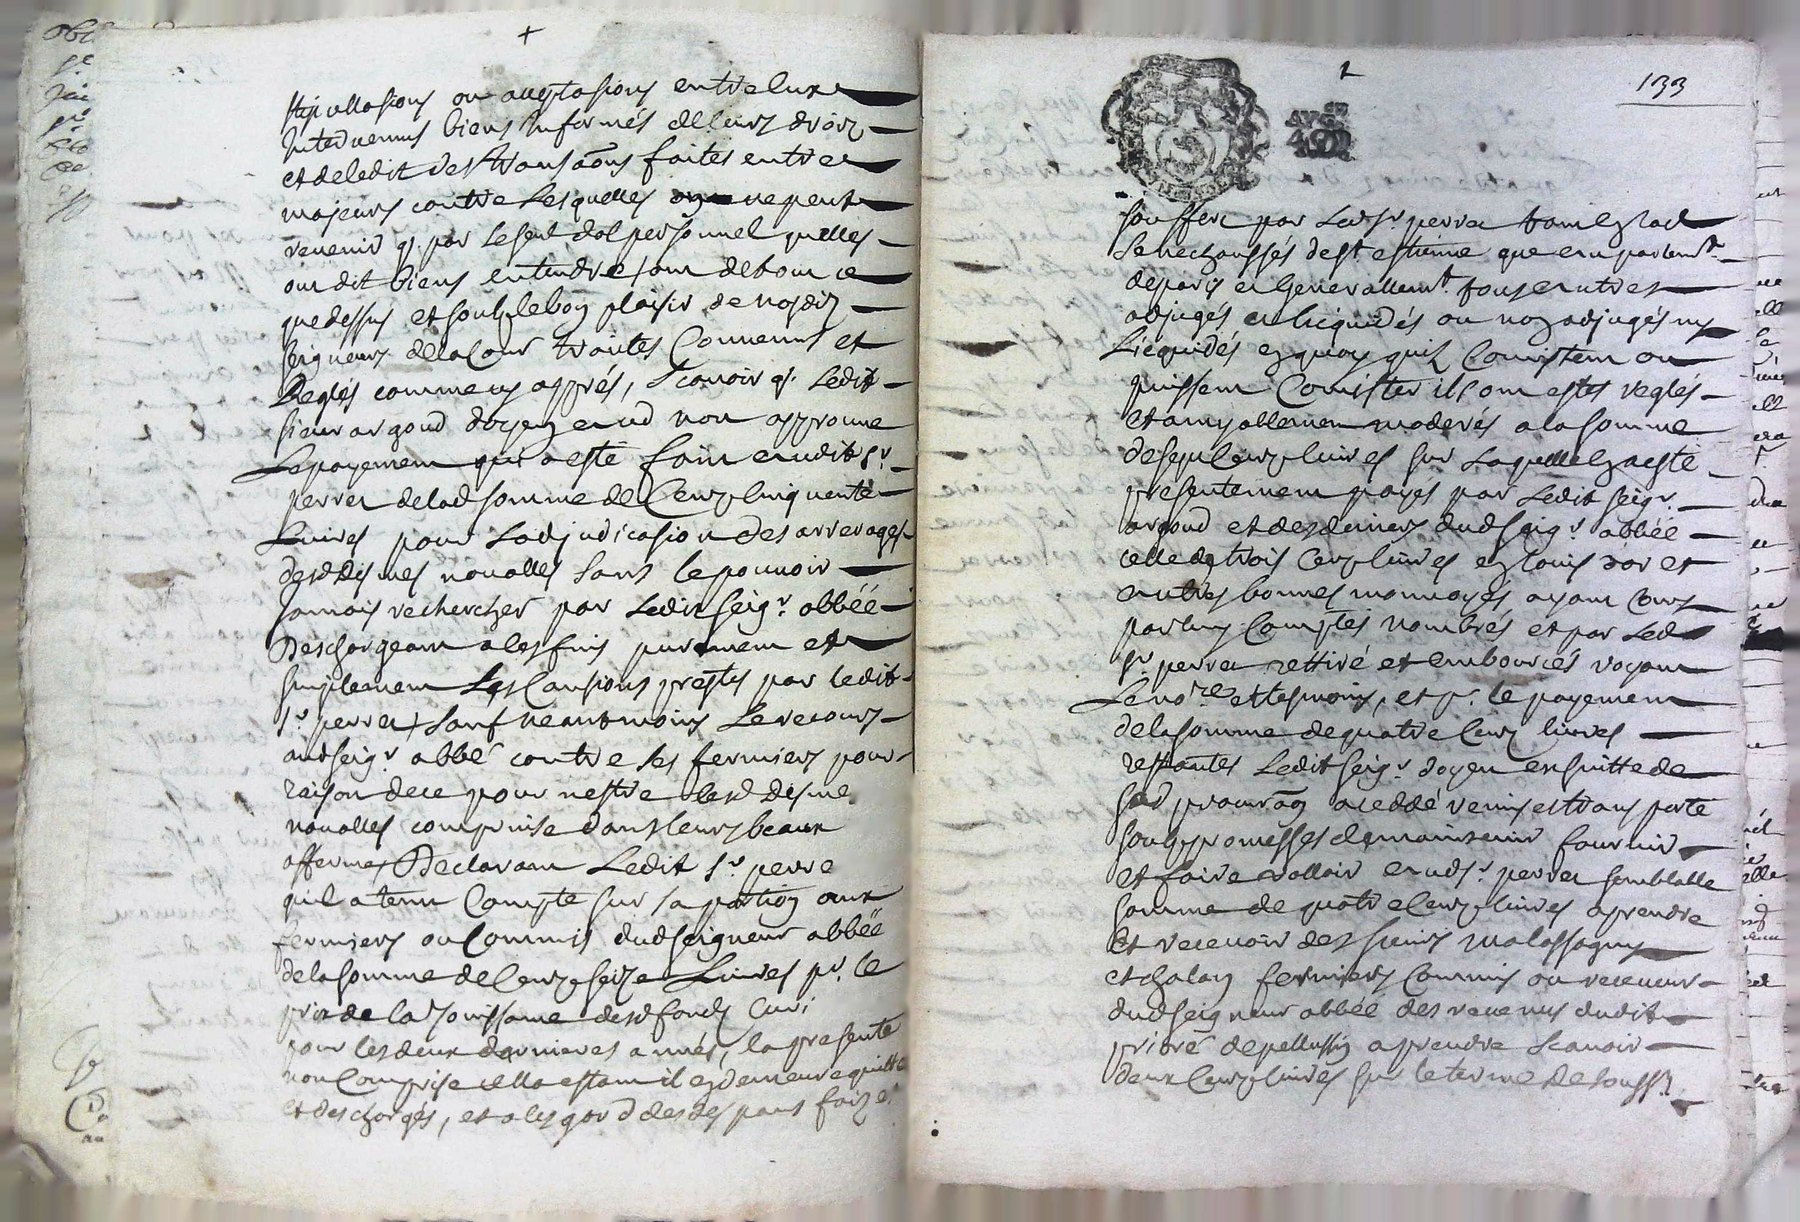 +
stipullasions ou acceptasions entre lux
Intervenus biens Informés de leurs drois
et deledit des transaōns faites entre
majeurs contre Lesquelles on ne peut
revenir q. par le seul dol personnel quelles
ont dit biens entendre, ont de bout ce
que dessus et soulz le bon plaisir de nosdis
seigneurs de la Cour traités Convenus et
Reglés comme cy apprés, Scavoir q. Ledit
sieur argoud doyen aud nom approuve
Le payement qui a esté fait audit sr
perret de lad somme de Cens Cinquente
Livres pour Ladjudicasion des arverages
desd Dismes novalles sans le pouvoir
jamais rechercher par Ledit seigr abbéé
Deschargeant a les fins purement et
simplement Les Causions prestés par ledit
sr perret, sauf neantmoins Le recours
audseigr abbé contre ses fermiers pour
raison de ce pour nestre lesd Disme
novalles comprise dans leurs beaux
afferme, Declarant Ledit sr perre
quil a tenu Compte sur sa portion aux
fermiers ou Commis dudseigneur abbéé
de la somme de Cens seize Livres pr le
prix de la Jouissance desd fonds Curi
pour les deux dernieres annés, la presente
non Comprise cella estant il en demeure quitte
et deschargés, et a lesgard des despans fais e
1
133
AVGon
soufferc par Ledsr perret tant en lad
Senechaussés de st estienne que en parlemt
de paris et Generallemt tous autres
adjugés et liequidés ou non adjugés ny
Liequidés en quoy quils Consistent ou
puissent Consister ils ont estés reglés
et amyablement moderés a la somme
de sept Cens livres sur Laquelle en a esté
presentement payés par Ledit seigr
argoud et des deniers dudseigr abbéé
celle de trois Cens livres en louis dor et
autres bonnes monnoyes ayant Cours
par luy Comptés nombrés et par Led
sr perret rettiré et emboursés voyant
Le nore et tesmoins, et pr le payement
de la somme de quatre Cens livres
restantes Ledit seigr doyen en suitte de
sad procuraōn a ceddé remis et transporté
soubz promesses de maintenir fournir
et faire valloir audsr perret semblable
somme de quatre Cens livres a prendre
et recevoir des sieurs malassagny
et chalan fermiers Commis ou receveurs
dudseigneur abbéé des revenus dudit
prioré de pellussin a prendre Scavoir
deux Cens livres sur le terme de touss.t